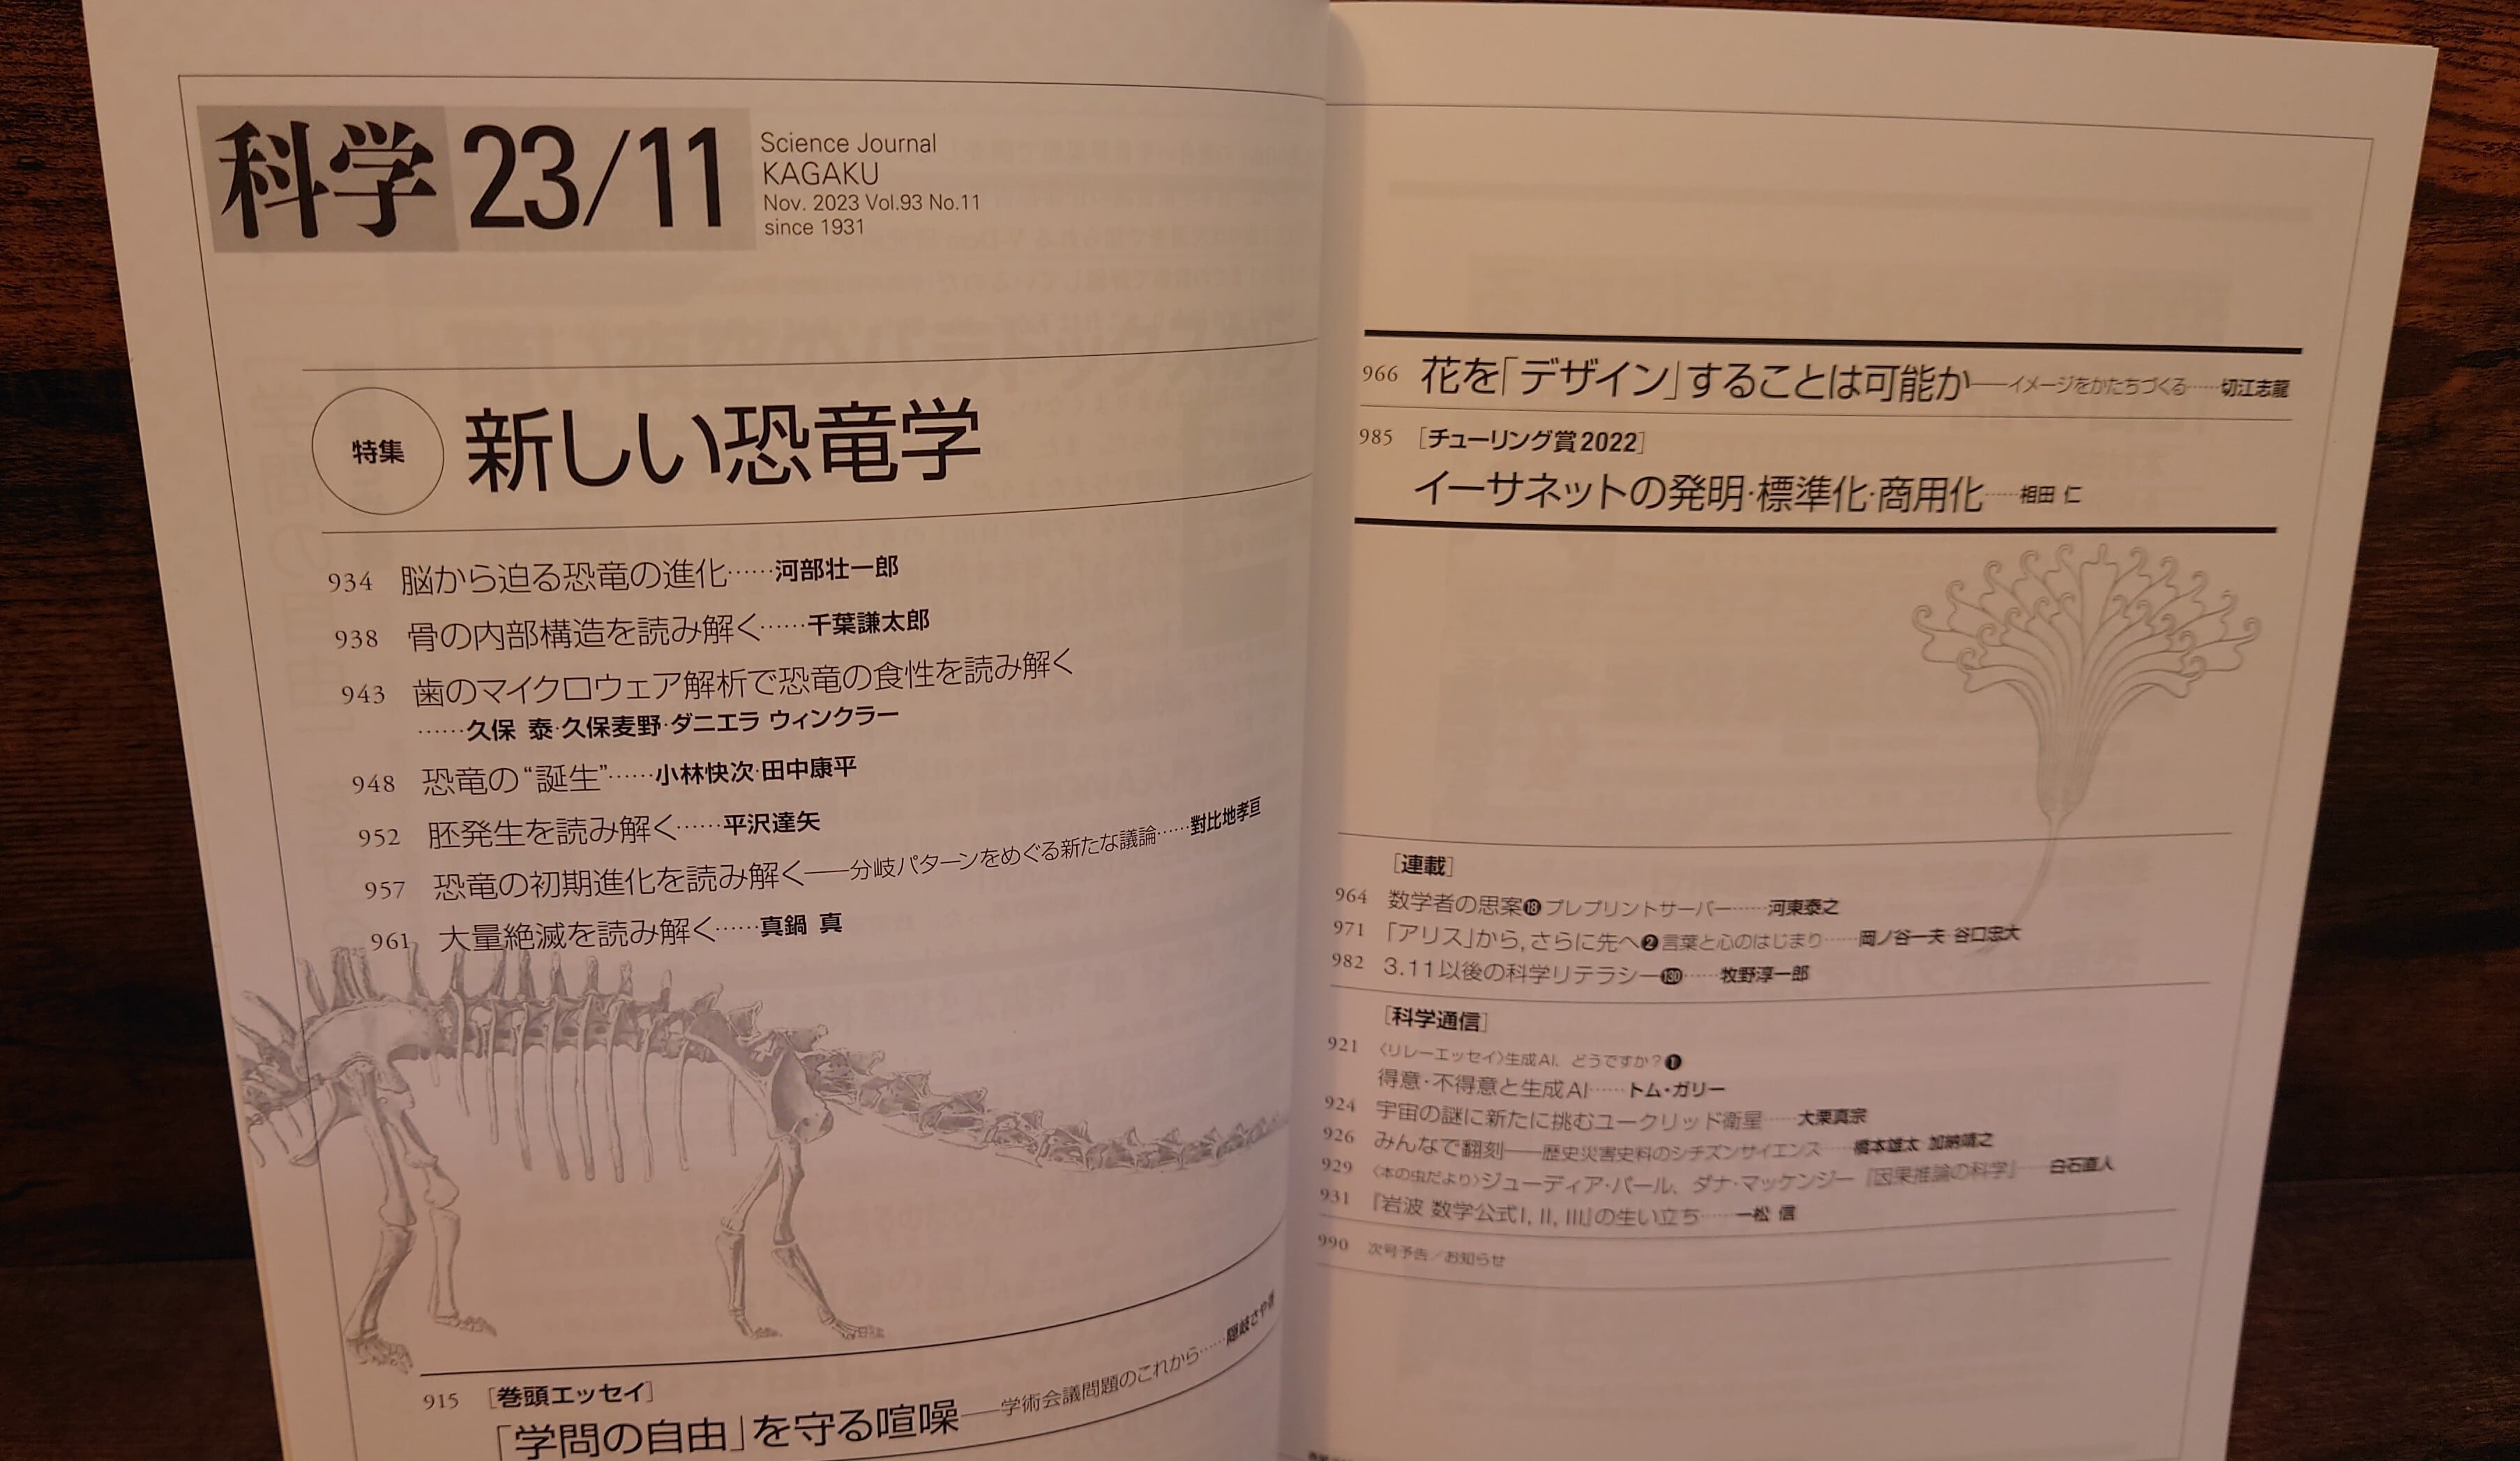 科学 23/11
Science Journal
KAGAKU
Nov. 2023 Vol.93 No.11
since 1931
特集 新しい恐竜学
934 脳から迫る恐竜の進化……河部壮一郎
938 骨の内部構造を読み解く……千葉謙太郎
943 歯のマイクロウェア解析で恐竜の食性を読み解く
……久保 泰・久保麦野・ダニエラ ウィンクラー
948 恐竜の“誕生”……小林快次・田中康平
952 胚発生を読み解く……平沢達矢
957 恐竜の初期進化を読み解く——分岐パターンをめぐる新たな議論……對比地孝亘
961 大量絶滅を読み解く……真鍋 真
915 [巻頭エッセイ]
「学問の自由」を守る喧噪——学術会議問題のこれから……隠岐さや香
966 花を「デザイン」することは可能か——イメージをかたちづくる……切江志龍
985 [チューリング賞2022]
イーサネットの発明・標準化・商用化……相田 仁
[連載]
964 数学者の思案⓲プレプリントサーバー……河東泰之
971 「アリス」から,さらに先へ❷言葉と心のはじまり……岡ノ谷一夫 谷口忠大
982 3.11以後の科学リテラシー130……牧野淳一郎
[科学通信]
921 〈リレーエッセイ〉生成AI、どうですか？❶
得意・不得意と生成AI……トム・ガリー
924 宇宙の謎に新たに挑むユークリッド衛星……大栗真宗
926 みんなで翻刻——歴史災害史料のシチズンサイエンス……橋本雄太 加納靖之
929 〈本の虫だより〉ジューディア・パール、ダナ・マッケンジー『因果推論の科学』……白石直人
931 『岩波 数学公式I, II, III』の生い立ち……一松 信
990 次号予告／お知らせ